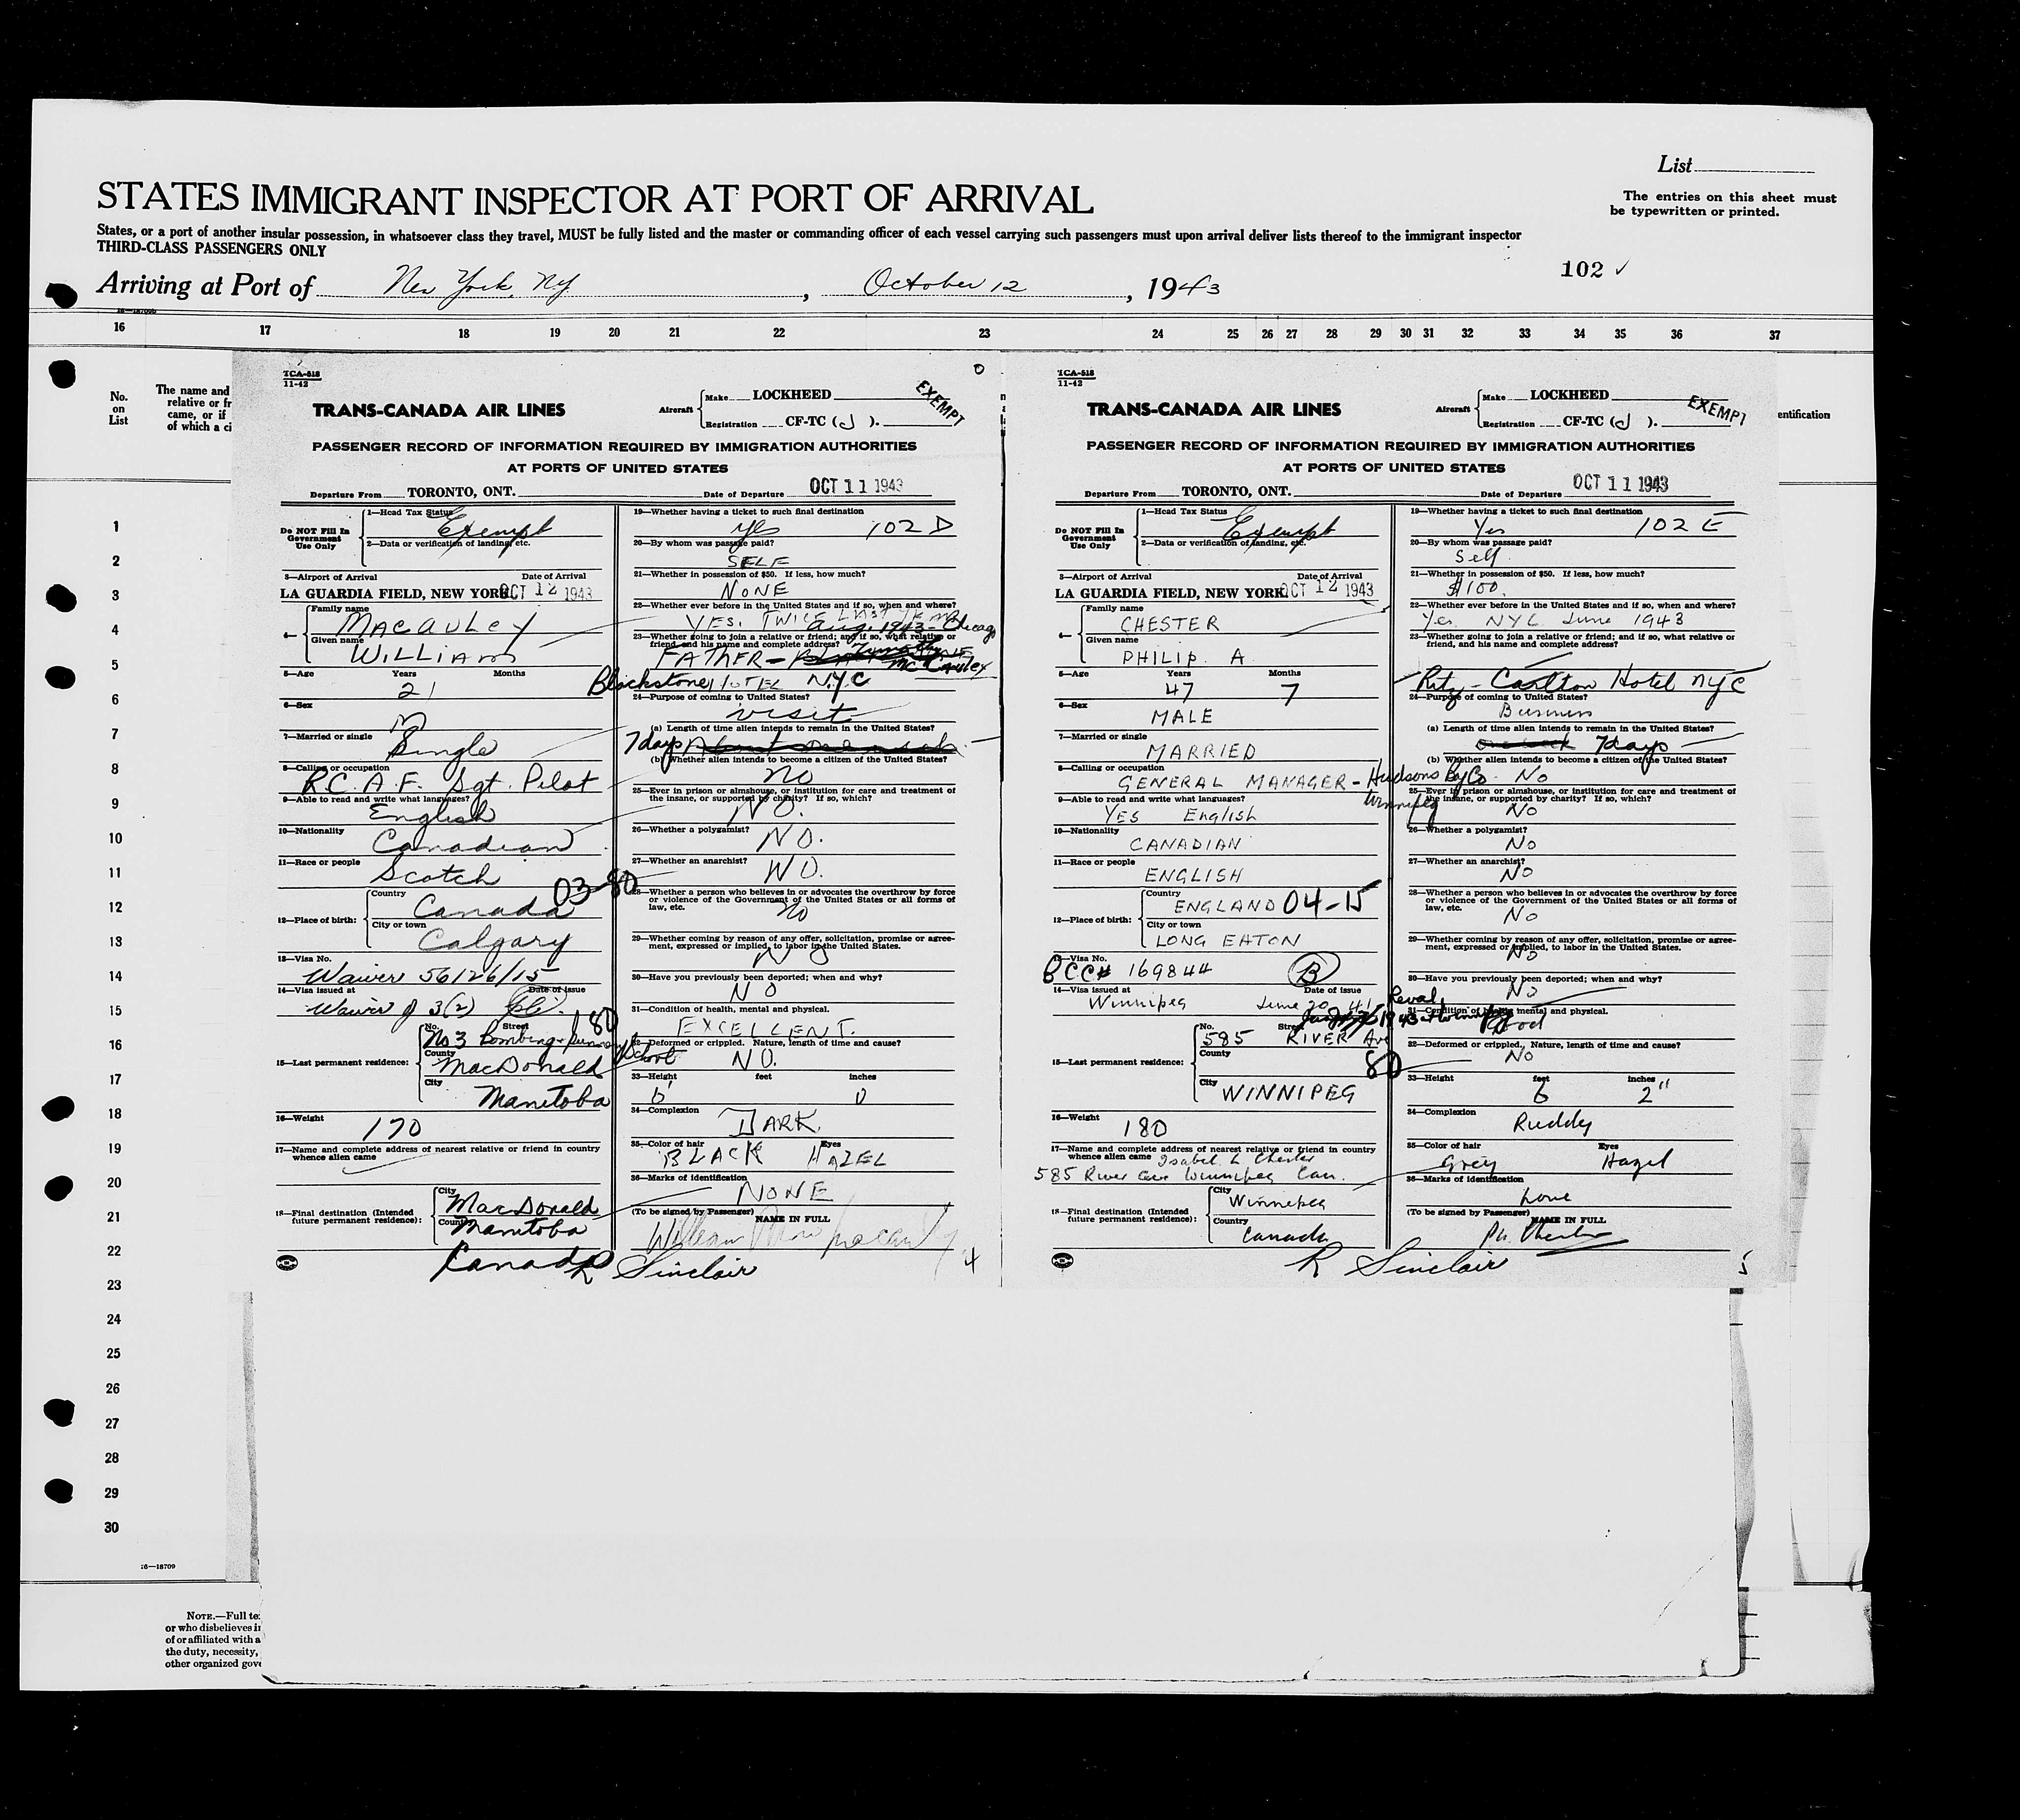 List
STATES IMMIGRANT INSPECTOR AT PORT OF ARRIVAL
The entries on this sheet must
be typewritten or printed.
States, or a port of another insular possession, in whatsoever class they travel, MUST be fully listed and the master or commanding officer of each vessel carrying such passengers must upon arrival deliver lists thereof to the immigrant inspector
THIRD-CLASS PASSENGERS ONLY
102 ✓
Arriving at Port of New York, NY, October 12, 1943
16 17 18 19 20 21 22 23 24 25 26 27 28 29 30 31 32 33 34 35 36 37
No.
on
List
The name and
relative or fr
came, or if
of which a ci
entification
1
2
3
4
5
6
7
8
9
10
11
12
13
14
15
16
17
18
19
20
21
22
23
24
25
26
27
28
29
30
16—18709
NOTE.—Full te
or who disbelieves in
of or affiliated with a
the duty, necessity,
other organized gove
TCA-518
11-42
TRANS-CANADA AIR LINES
Aircraft
Make LOCKHEED
Registration CF-TC (J).
EXEMPT
PASSENGER RECORD OF INFORMATION REQUIRED BY IMMIGRATION AUTHORITIES
AT PORTS OF UNITED STATES
Departure From TORONTO, ONT. Date of Departure OCT 11 1943
Do NOT Fill In
Government
Use Only
1—Head Tax Status
Exempt
2—Data or verification of landing, etc.
3—Airport of Arrival Date of Arrival
LA GUARDIA FIELD, NEW YORK OCT 12 1943
4—
Family name
MACAULEY
Given name
WILLIAM
5—Age Years Months
21
6—Sex
M
7—Married or single
Single
8—Calling or occupation
R.C.A.F. Sgt. Pilot
9—Able to read and write what languages?
English
10—Nationality
Canadian
11—Race or people
Scotch
03-80
12—Place of birth:
Country
Canada
City or town
Calgary
13—Visa No.
Waiver 56126/15
14—Visa issued at Date of issue
Waiver of 3(2)
180
15—Last permanent residence:
No. Street
No 3 Bombing + Gunnery School
County
MacDonald
City
Manitoba
16—Weight
170
17—Name and complete address of nearest relative or friend in country
whence alien came
18—Final destination (Intended
future permanent residence):
City
MacDonald
Country
Manitoba
Canada
19—Whether having a ticket to such final destination
yes 102 D
20—By whom was passage paid?
SELF
21—Whether in possession of $50. If less, how much?
NONE
22—Whether ever before in the United States and if so, when and where?
YES. TWICE LAST YEAR
Aug. 1943 - Chicago
23—Whether going to join a relative or friend; and if so, what relative or
friend and his name and complete address?
FATHER — McCauley
Blackstone HOTEL N.Y.C
24—Purpose of coming to United States?
visit
(a) Length of time alien intends to remain in the United States?
7 days
(b) Whether alien intends to become a citizen of the United States?
no
25—Ever in prison or almshouse, or institution for care and treatment of
the insane, or supported by charity? If so, which?
NO.
26—Whether a polygamist?
NO.
27—Whether an anarchist?
NO.
28—Whether a person who believes in or advocates the overthrow by force
or violence of the Government of the United States or all forms of
law, etc.
no
29—Whether coming by reason of any offer, solicitation, promise or agree-
ment, expressed or implied, to labor in the United States.
NO
30—Have you previously been deported; when and why?
NO
31—Condition of health, mental and physical.
EXCELLENT.
32—Deformed or crippled. Nature, length of time and cause?
NO.
33—Height feet inches
6' 0
34—Complexion
DARK.
35—Color of hair Eyes
BLACK HAZEL
36—Marks of identification
NONE
(To be signed by Passenger) NAME IN FULL
William
R Sinclair
4
TCA-518
11-42
TRANS-CANADA AIR LINES
Aircraft
Make LOCKHEED
Registration CF-TC (J).
EXEMPT
PASSENGER RECORD OF INFORMATION REQUIRED BY IMMIGRATION AUTHORITIES
AT PORTS OF UNITED STATES
Departure From TORONTO, ONT. Date of Departure OCT 11 1943
Do NOT Fill In
Government
Use Only
1—Head Tax Status
Exempt
2—Data or verification of landing, etc.
3—Airport of Arrival Date of Arrival
LA GUARDIA FIELD, NEW YORK OCT 12 1943
4—
Family name
CHESTER
Given name
PHILIP. A
5—Age Years Months
47 7
6—Sex
MALE
7—Married or single
MARRIED
8—Calling or occupation
GENERAL MANAGER - Hudsons Bay Co.
Winnipeg
9—Able to read and write what languages?
YES English
10—Nationality
CANADIAN
11—Race or people
ENGLISH
12—Place of birth:
Country
ENGLAND 04-15
City or town
LONG EATON
13—Visa No.
BCC# 169844 B
14—Visa issued at Date of issue
Winnipeg June 20 41
Reval.
15—Last permanent residence:
No. Street
585 RIVER Ave
County
80
City
WINNIPEG
16—Weight
180
17—Name and complete address of nearest relative or friend in country
whence alien came Isabel L Chester
585 River Ave Winnipeg Can.
18—Final destination (Intended
future permanent residence):
City
Winnipeg
Country
Canada
19—Whether having a ticket to such final destination
Yes 102 E
20—By whom was passage paid?
Self
21—Whether in possession of $50. If less, how much?
$100.
22—Whether ever before in the United States and if so, when and where?
Yes. NYC June 1943
23—Whether going to join a relative or friend; and if so, what relative or
friend, and his name and complete address?
Ritz-Carlton Hotel NYC
24—Purpose of coming to United States?
Business
(a) Length of time alien intends to remain in the United States?
7 days
(b) Whether alien intends to become a citizen of the United States?
No
25—Ever in prison or almshouse, or institution for care and treatment of
the insane, or supported by charity? If so, which?
No
26—Whether a polygamist?
No
27—Whether an anarchist?
No
28—Whether a person who believes in or advocates the overthrow by force
or violence of the Government of the United States or all forms of
law, etc.
No
29—Whether coming by reason of any offer, solicitation, promise or agree-
ment, expressed or implied, to labor in the United States.
No
30—Have you previously been deported; when and why?
No
31—Condition of health, mental and physical.
Good
32—Deformed or crippled. Nature, length of time and cause?
No
33—Height feet inches
6 2"
34—Complexion
Ruddy
35—Color of hair Eyes
Grey Hazel
36—Marks of identification
None
(To be signed by Passenger) NAME IN FULL
Ph. Chester
R Sinclair
5